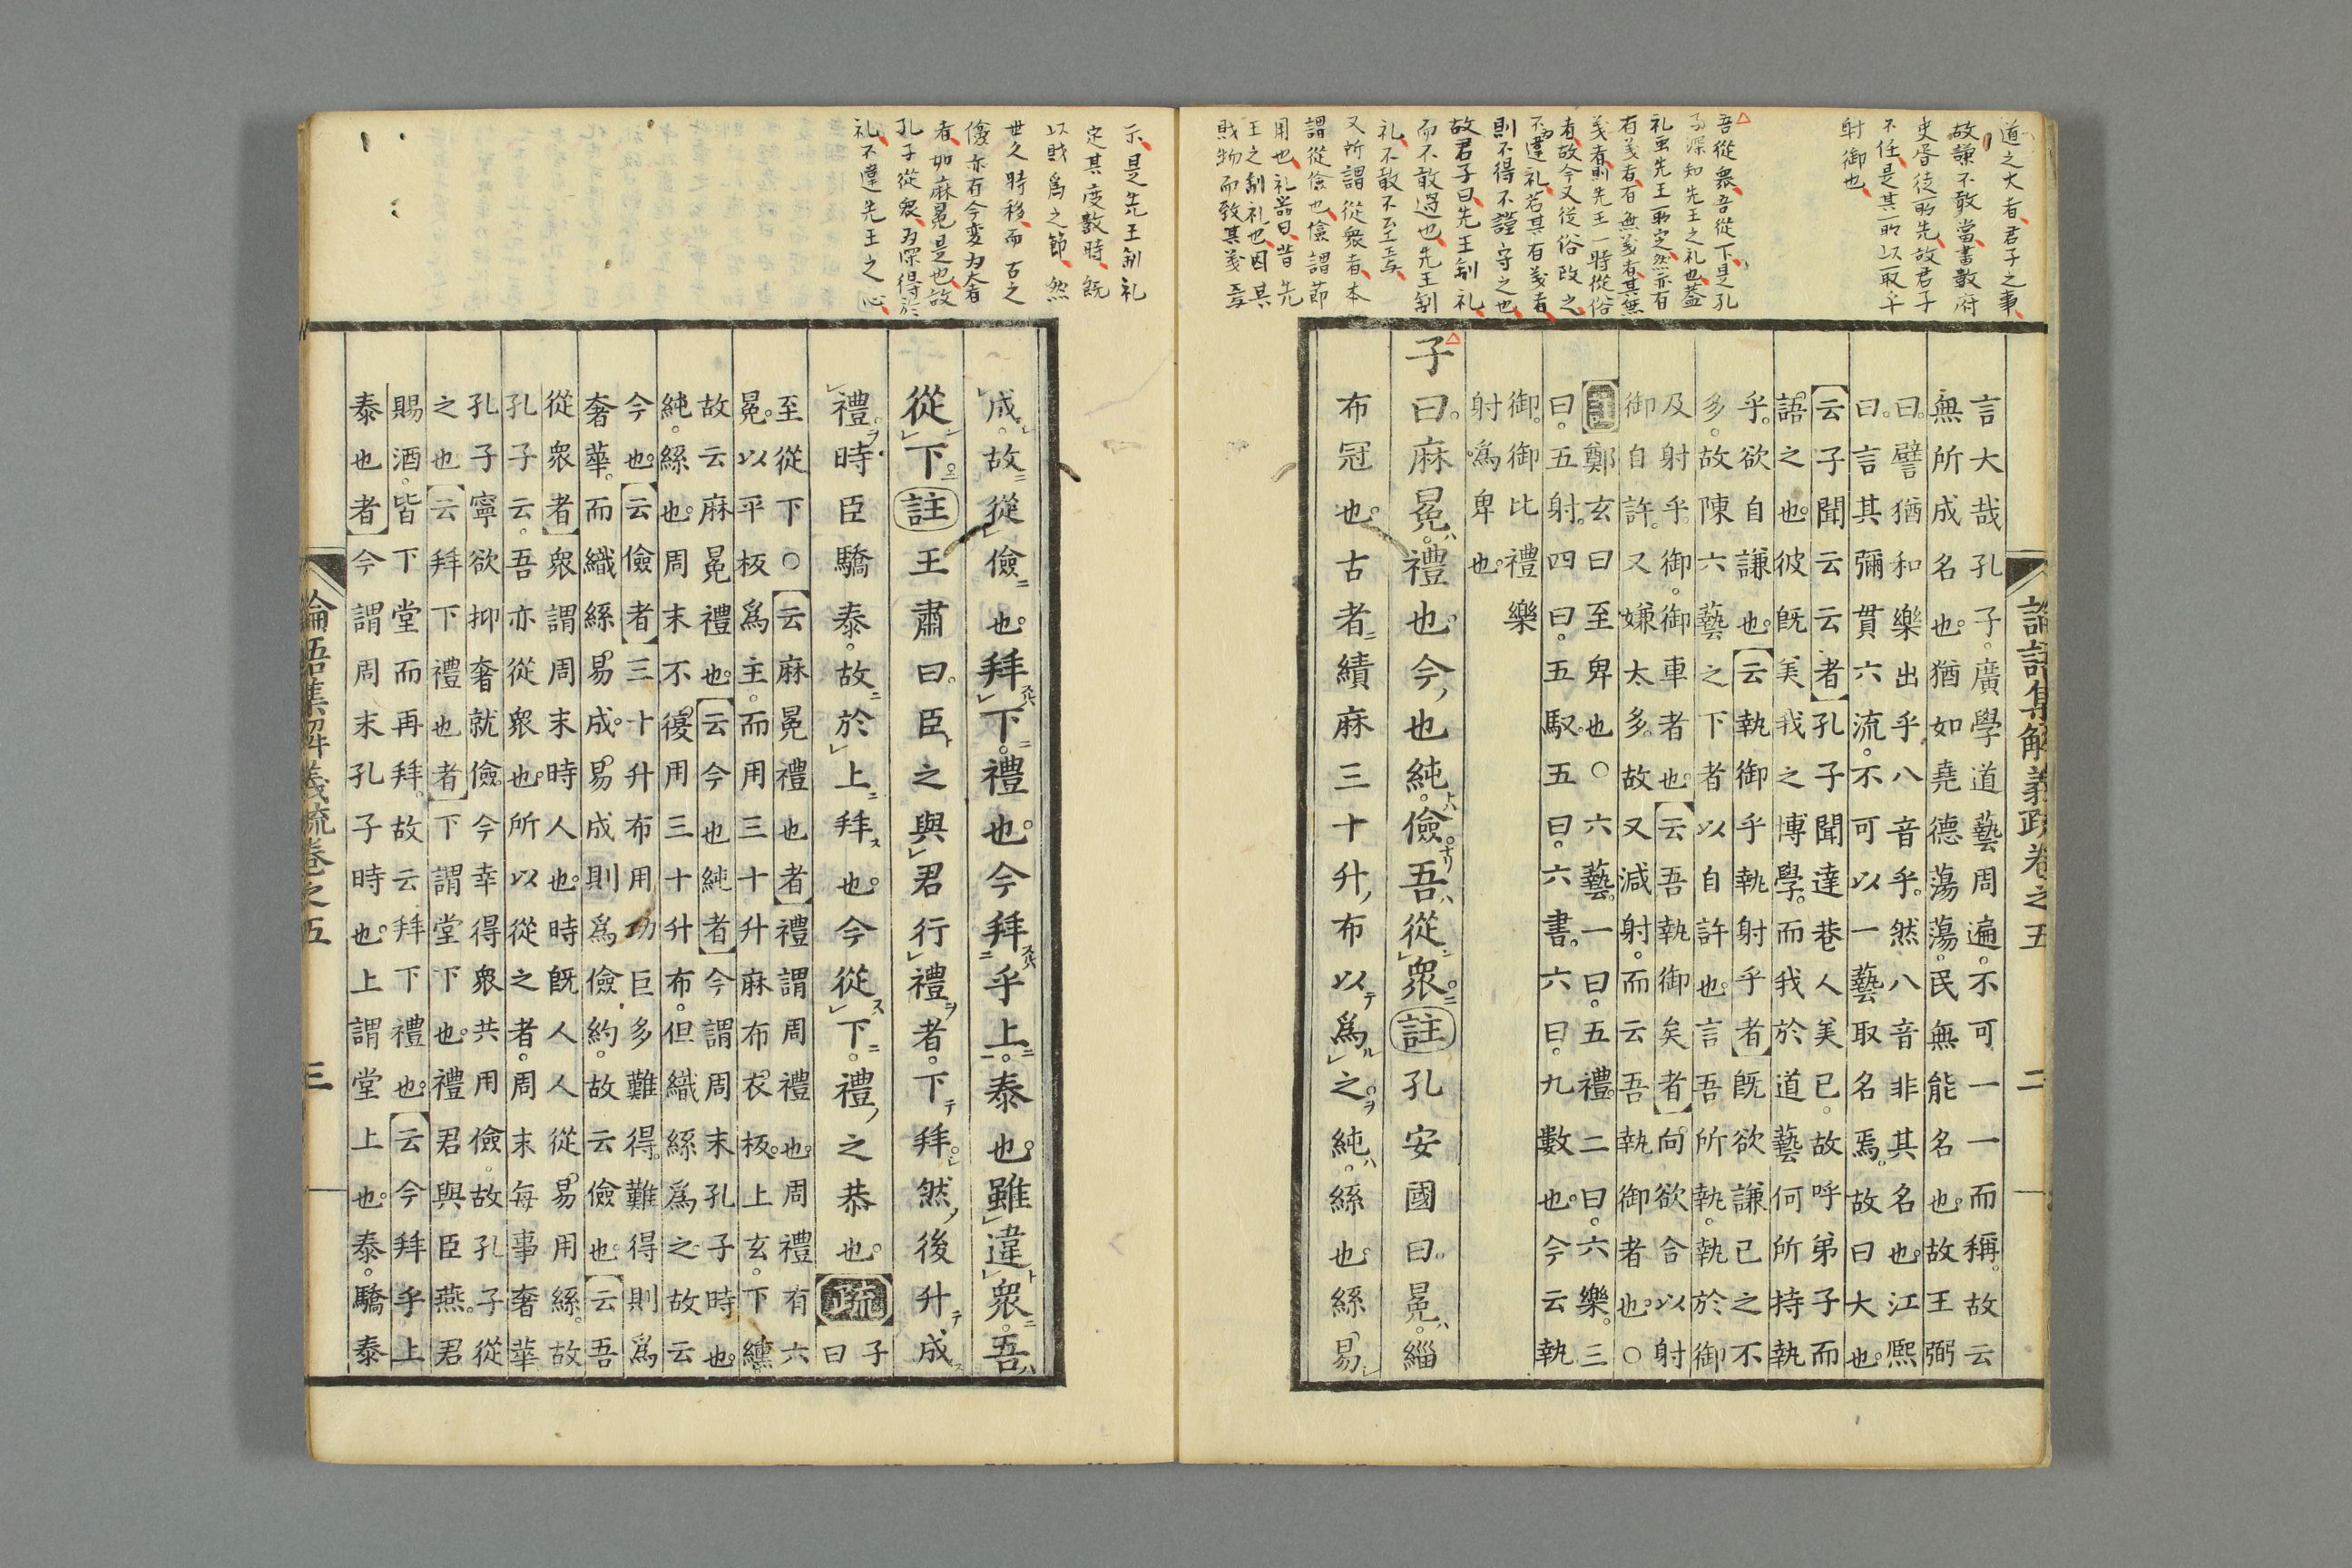 道之大者君子之事
故謙不敢當書數府
史胥徒所先故君子
不任是其所以取乎
射御也
吾從衆吾從下是孔
子深知先王之礼也蓋
礼虽先王所定然亦有
有義者有無義者其無
義者則先王一時從俗
者故今又從俗改之
不為違礼若其有義者
則不得不謹守之也
故君子曰先王制礼
而不敢過也先王制
礼不敢不至焉
又所謂從衆者本
謂從儉也儉謂節
用也礼器曰昔先
王之制礼也因其
財物而致其義焉
論語集解義疏卷之五 二
言大哉孔子廣學道藝周遍不可一一而稱故云
無所成名也猶如堯德蕩蕩民無能名也故王弼
曰譬猶和樂出乎八音乎然八音非其名也江熙
曰言其彌貫六流不可以一藝取名焉故曰大也
云子聞云云者孔子聞達巷人美已故呼弟子而
語之也彼既美我之博學而我於道藝何所持執
乎欲自謙也云執御乎執射乎者既欲謙已之不
多故陳六藝之下者以自許也言吾所執執於御
及射乎御御車者也云吾執御矣者向欲合以射
御自許又嫌太多故又減射而云吾執御者也○
註鄭玄曰至卑也○六藝一曰五禮二曰六樂三
曰五射四曰五馭五曰六書六曰九數也今云執
御御比禮樂
射為卑也
子曰麻冕禮也今也純儉吾從衆註孔安國曰冕緇
布冠也古者績麻三十升布以爲之純絲也絲易
示是先王制礼
定其度數時既
以財爲之節然
世久時移而古之
儉亦有今変为太者
者如麻冕是也故
孔子從衆为深得於
礼不違先王之心
成故從儉也拜下禮也今拜乎上泰也雖違衆吾
從下註王肅曰臣之與君行禮者下拜然後升成
禮時臣驕泰故於上拜也今從下禮之恭也疏子曰
至從下○云麻冕禮也者禮謂周禮也周禮有六
冕以平板爲主而用三十升麻布衣板上玄下纁
故云麻冕禮也云今也純者今謂周末孔子時也
純絲也周末不復用三十升布但織絲爲之故云
今也云儉者三十升布用功巨多難得難得則爲
奢華而織絲易成易成則爲儉約故云儉也云吾
從衆者衆謂周末時人也時既人人從易用絲故
孔子云吾亦從衆也所以從之者周末每事奢華
孔子寧欲抑奢就儉今幸得衆共用儉故孔子從
之也云拜下禮也者下謂堂下也禮君與臣燕君
賜酒皆下堂而再拜故云拜下禮也云今拜乎上
泰也者今謂周末孔子時也上謂堂上也泰驕泰
論語集解義疏卷之五 三